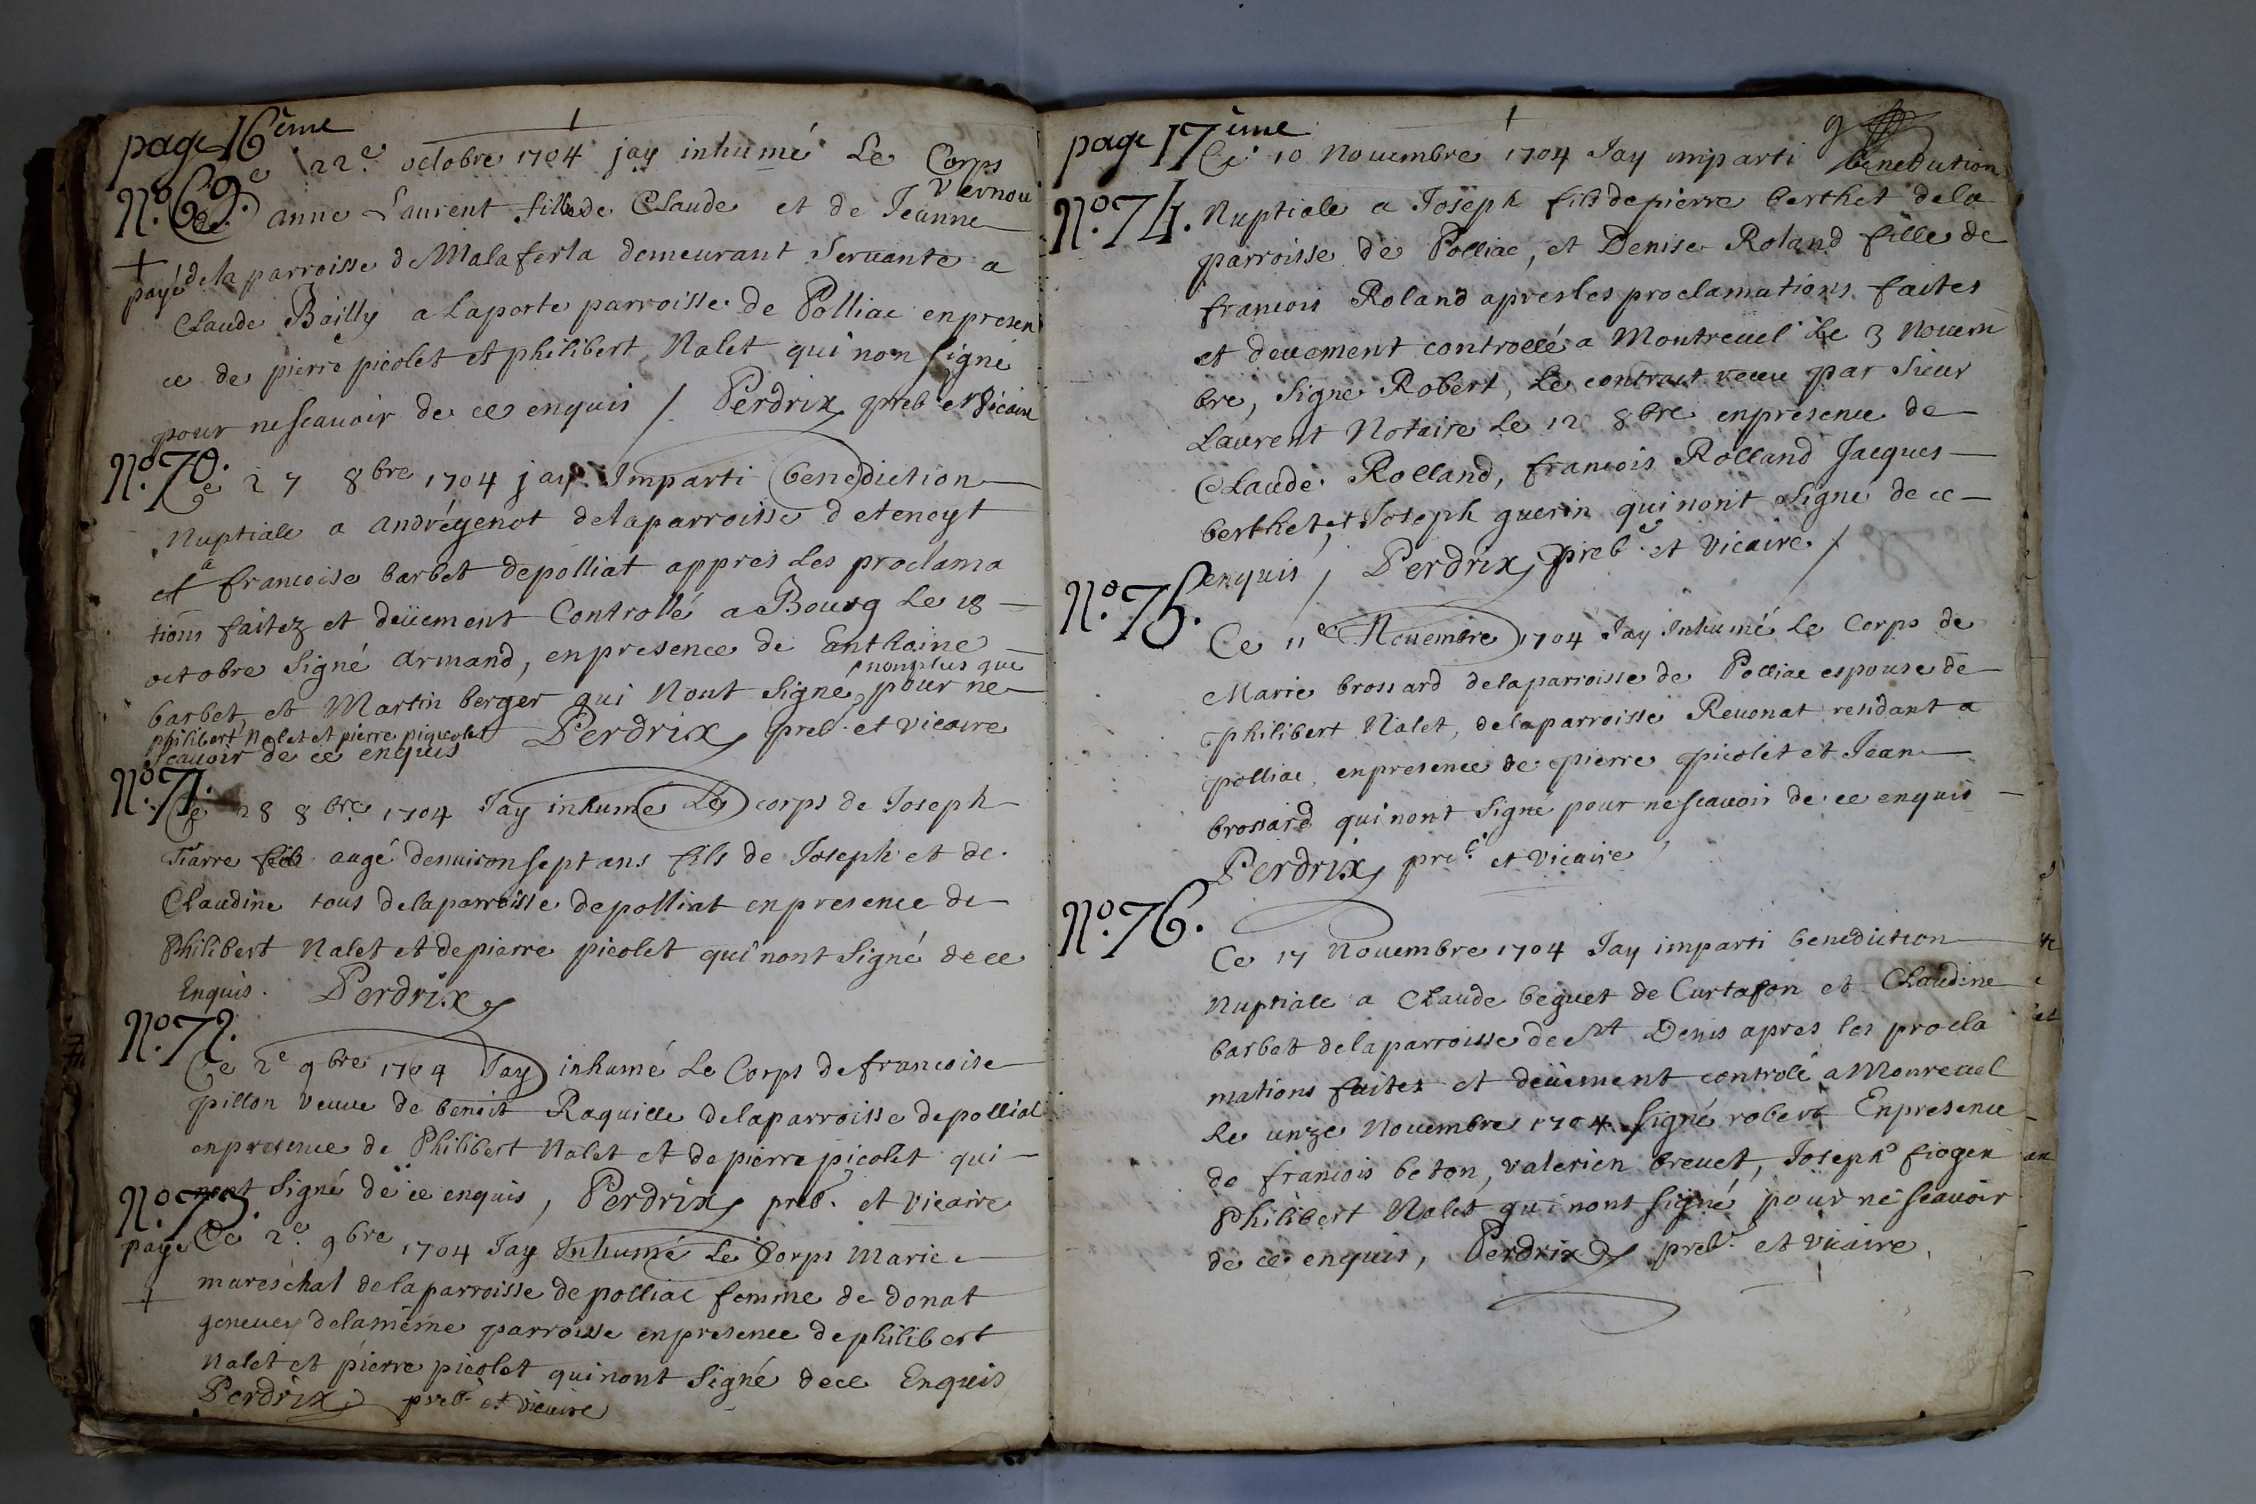 page 16ème
Ce 22e. octobre 1704 jay inhumé Le Corps
No. 69. de anne Laurent fille de Claude et de Jeanne Vernou
+
payé de la parroisse de Malaferta demeurant Servante a
Claude Bailly a Laporte parroisse de Polliac en presen
ce de pierre picolet et philibert Nalet qui non signé
pour ne scauoir de ce enquis / Perdrix preb et Vicaire
No. 70.
Ce 27 8bre 1704 jay Imparti benediction
Nuptiale a andré genot de la parroisse d eteneyt
et a francoise barbet de polliat appres Les proclama
tions faitez et deüement Controllé a Bourg Le 18
octobre Signé armand, en presence de Anthoine
barbet, et Martin berger qui Nont Signé, non plus que pour ne
philibert Nalet et pierre piquolet
scauoir de ce enquis Perdrix, preb. et vicaire
No. 71.
Ce 28 8bre 1704 Jay inhumé Le corps de Joseph
Tiarre fils augé denuiron sept ans fils de Joseph et de
Claudine tous de la parroisse de polliat en presence de
Philibert Nalet et de pierre picolet qui nont Signé de ce
Enquis. Perdrix
No. 72.
Ce 2e 9bre 1704 Jay inhumé Le Corps de francoise
pillon veuue de benoit Raquille de la parroisse de polliat
en presence de Philibert Nalet et de pierre picolet qui
nont Signé de ce enquis, Perdrix, preb. et vicaire
No. 73.
payé Ce 2e. 9bre 1704 Jay Inhumé Le Corps Marie
mareschal de la parroisse de polliac femme de donat
+
geneuey de la même parroisse en presence de philibert
Nalet et pierre picolet qui nont Signé de ce Enquis
Perdrix preb et vicaire
page 17ème
9
Ce 10 Nouembre 1704 Jay imparti benediction
No. 74. Nuptiale a Joseph fils de pierre berthet de la
parroisse de Polliac, et Denise Roland fille de
francois Roland apres les proclamations faites
et deuement controllé a Montreuel Le 3 Nouem
bre, Signé Robert, Le contract receu par Sieur
Laurent Notaire Le 12 8bre en présence de
Claude Rolland, francois Rolland Jacques
berthet, et Joseph guerin qui nont Signé de ce
enquis, Perdrix, preb. et Vicaire /
No. 75.
Ce 11e Nouembre 1704 Jay Inhumé Le Corps de
Marie brossard de la parroisse de Polliac espouse de
philibert Nalet, de la parroisse Reuonat residant a
polliac, en presence de pierre picolet et Jean
brossard qui nont Signé pour ne scauoir de ce enquis
Perdrix, preb. et vicaire
No. 76.
Ce 17 Nouembre 1704 Jay imparti benediction
Nuptiale a Claude beguet de Curtafon et Claudine
barbet de la parroisse de St Denis apres les procla
mations faites et deüement controlé a Monreuel
Le unze Nouembre 1704 Signé robert En presence
de francois beton, valerien breuet, Joseph fioger
Philibert Nalet qui nont signé pour ne scauoir
de ce enquis, Perdrix preb. et vicaire